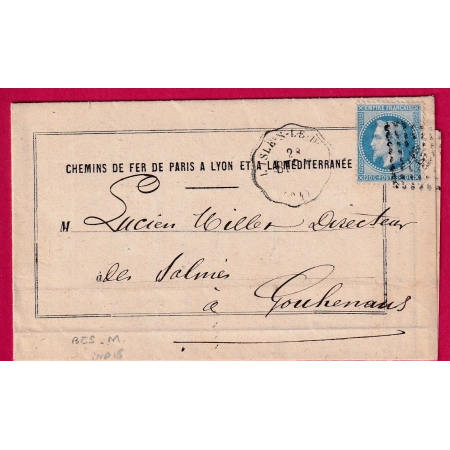 EMPIRE FRANÇAIS
20C POSTES 20C
L'ISLE-S-LE-D
23
(24)
CHEMINS DE FER DE PARIS A LYON ET A LA MÉDITERRANÉE
M Lucien Miller Directeur
à des Salines
à Gouhenans
BES. M.
IND 18